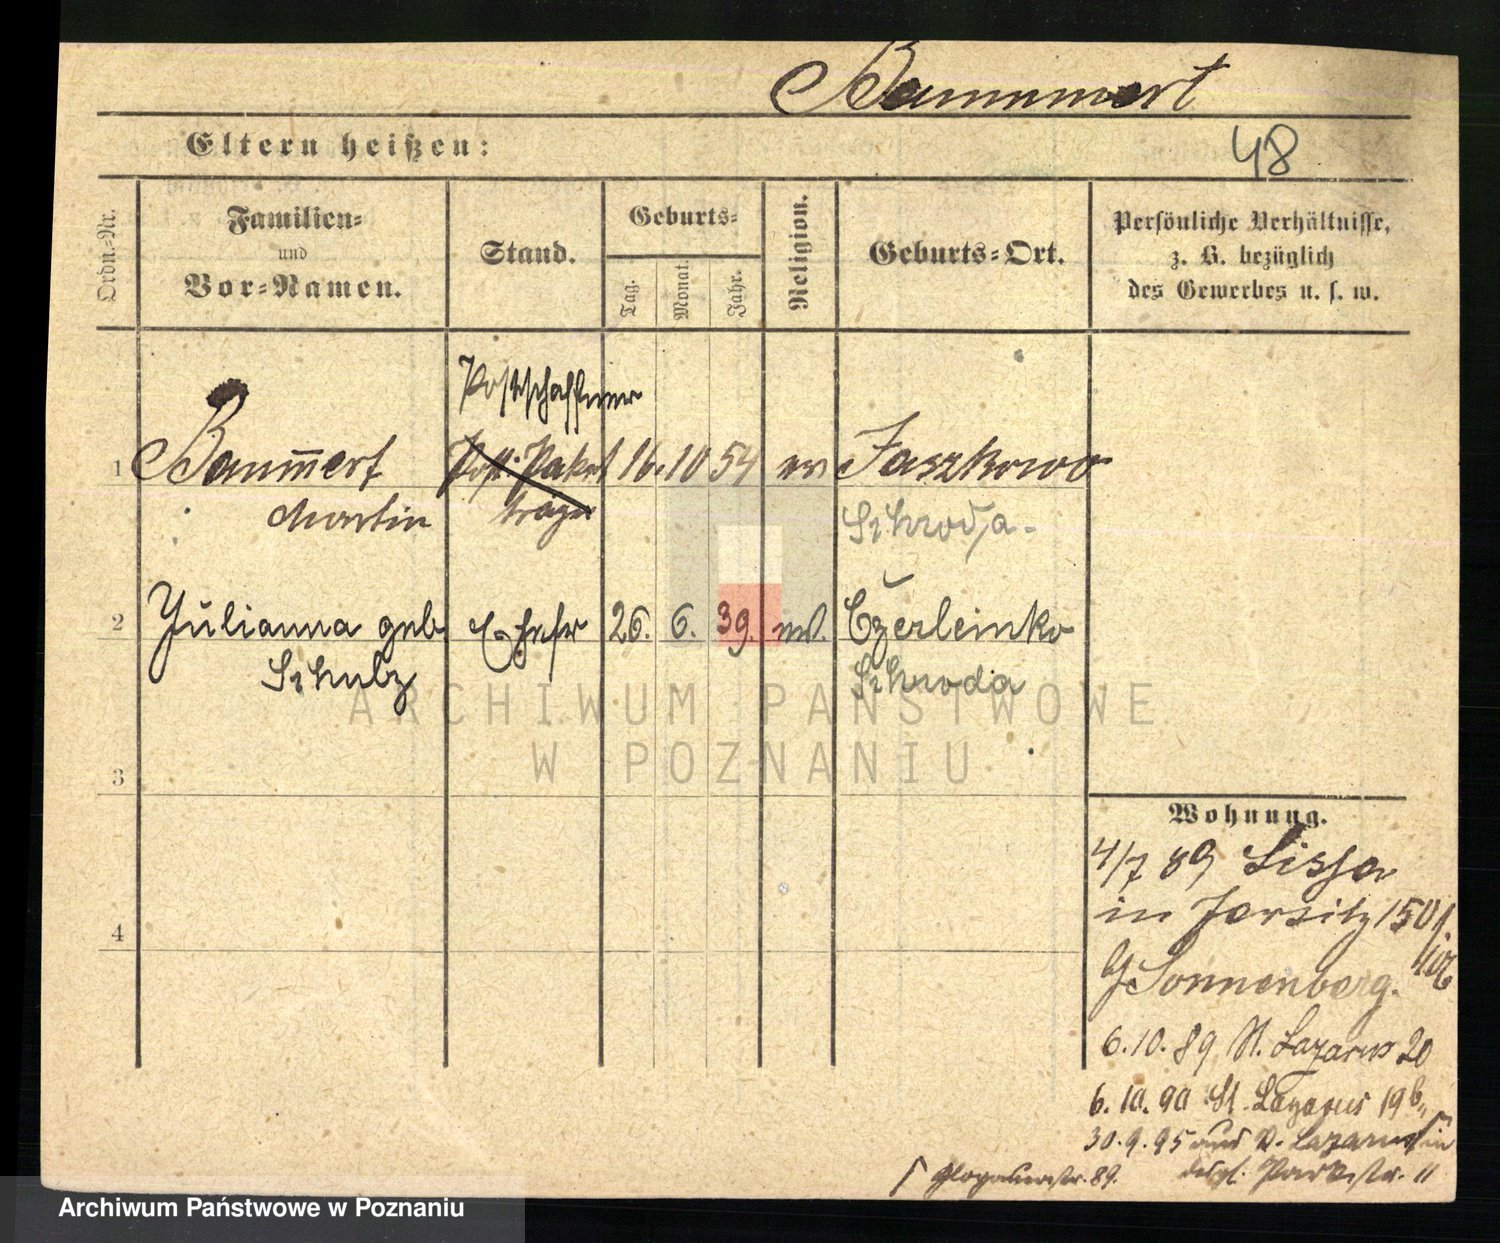 Baummert
Eltern heißen:
48
Ordn.-Nr.
Familien-
und
Vor-Namen.
Stand.
Geburts-
Tag.
Monat.
Jahr.
Religion.
Geburts-Ort.
Persönliche Verhältnisse,
z. B. bezüglich
des Gewerbes u. s. w.
Postschaffner
1 Baum̄ert Post-Paket 16. 10 54 ev Jaszkowo
Martin träger Schroda
2 Julianna geb Ehefr 26. 6. 39. ev. Czerleinko
Schulz Schroda
ARCHIWUM PAŃSTWOWE
W POZNANIU
3
4
Wohnung.
4/7 89 Lissa
in Jersitz 150
Sonnenberg.
6.10.89 St. Lazarus 20
6.10.90 St. Lazarus 19b
30.9.95 aus St. Lazarus in
Glogauerstr. 89. desgl. Parkstr. 11
Archiwum Państwowe w Poznaniu